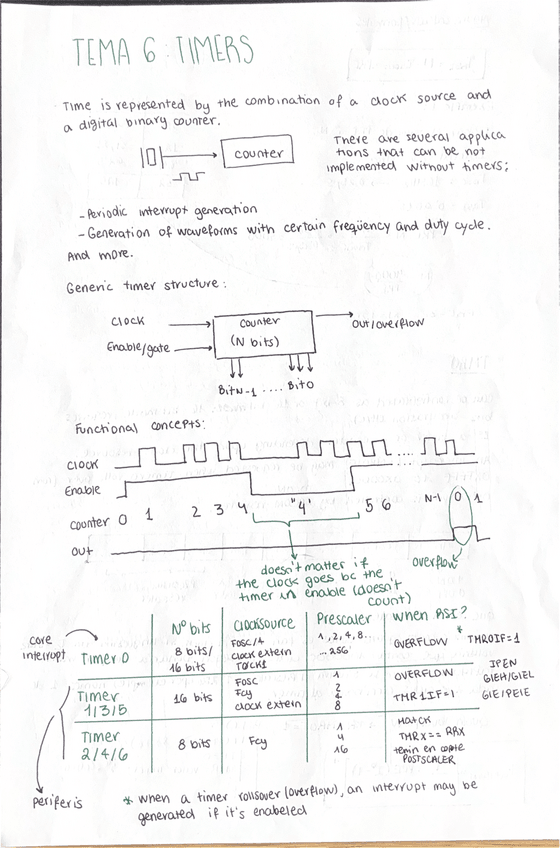 TEMA 6: TIMERS
Time is represented by the combination of a clock source and
a digital binary counter.
counter
There are several applica
tions that can be not
implemented without timers;
- Periodic interrupt generation
- Generation of waveforms with certain freqüency and duty cycle.
And more.
Generic timer structure:
Clock
Enable/gate
counter
(N bits)
Out/overflow
BitN-1 .... Bit0
Functional concepts:
Clock
Enable
counter 0 1 2 3 4 "4" 5 6 N-1 0 1
Out
doesn't matter if
the clock goes bc the
timer in enable (doesn't
count)
overflow
Nº bits Clocksource Prescaler When RSI?
core
interrupt
Timer 0
8 bits/
16 bits
FOSC/4
clock extern
T0CKI
1, 2, 4, 8...
...256
OVERFLOW * TMR0IF=1
Timer
1/3/5
16 bits
FOSC
Fcy
clock extern
1
2
4
8
OVERFLOW
TMR1IF=1
IPEN
GIEH/GIEL
GIE/PEIE
Timer
2/4/6
8 bits
Fcy
1
4
16
Match
TMRX == PRX
tenin en compte
POSTSCALER
periferis
* When a timer rollsover (overflow), an interrupt may be
generated if it's enabeled